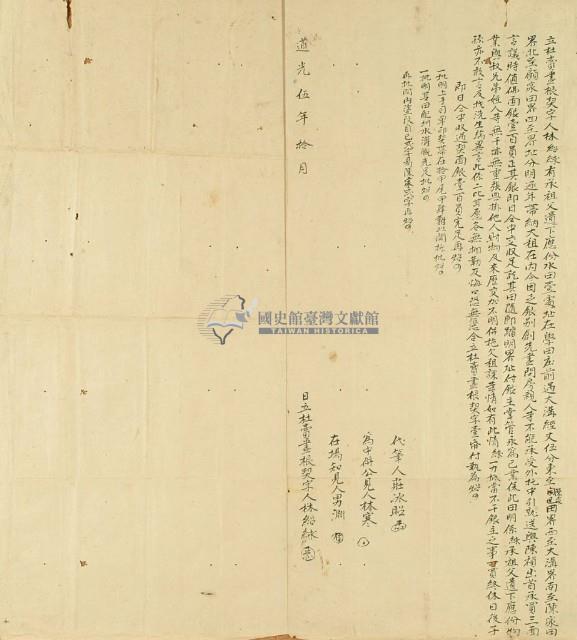 立杜賣盡根契字人林紹綵有承祖父遺下應份水田壹處址在學田庄前過大溝經丈伍分東至田界西至大溝界南至陳家田
界北至顧家田界四至界址分明逐年帶納大租在內今因乏銀別創先盡問房親人等不能承受外托中引就送與陳補出首承買三面
言議時值佛面銀壹百員正其銀即日仝中交收足訖其田隨即踏明界址付銀主掌管永為己業保此田明係綵承祖父遺下應份物
業與叔兄弟姪人等無干亦無重張典掛他人財物及來歷交加不明併拖欠租課等情如有此情綵一力抵當不干銀主之事一賣終休日後子
孫亦不敢言及找洗生端異言此係二比甘愿各無抑勒反悔口恐無憑今立杜賣盡根契字壹紙付執為炤
即日仝中收過契面銀壹百員完足再炤
一批明上手司單印契
一批明其田配圳水溝
再批
道光伍年拾月
代筆人莊冰昭
為中併公見人林寒
在場知見人男淵
日立杜賣盡根契字人林紹綵
國史館臺灣文獻館
TAIWAN HISTORICA